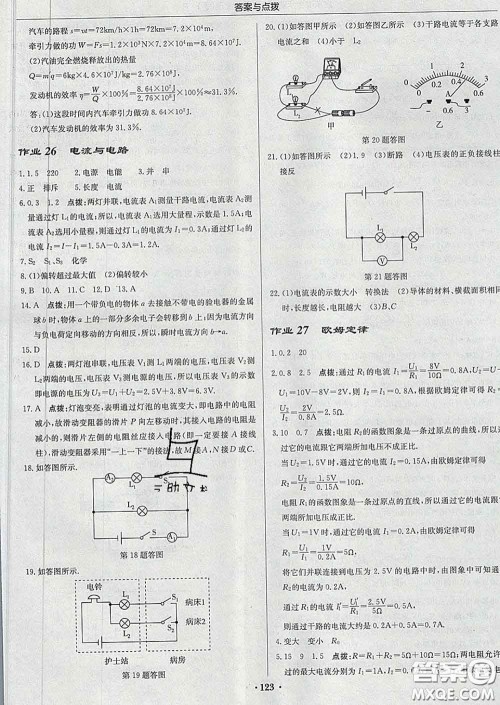 答案与点拨
汽车的路程 s=vt=72km/h×1h=72km=7.2×10⁴m
牵引力做的功 W=Fs=1.2×10³N×7.2×10⁴m=8.64×10⁷J
(2)汽油完全燃烧释放出的热量
Q=mq=6kg×4.6×10⁷J/kg=2.76×10⁸J
发动机的效率 η=W/Q×100%=8.64×10⁷J/2.76×10⁸J×100%≈31.3%.
答：(1)这段时间内汽车牵引力做功8.64×10⁷J.
(2)汽车发动机的效率为31.3%.
作业 26 电流与电路
1.1.5 220 2.电源 电能 3.并 串
4.正 排斥 5.长度 电流
6.0.3 1.2 点拨：两灯并联，电流表A₁测量干路电流，电流表A₂测
量通过灯L₁的电流；所以，电流表A₁选用大量程，示数是1.5A；电
流表A₂选用小量程，所以通过灯L₁的电流为I₁=0.3A；通过灯L₂
的电流I₂=I-I₁=1.5A-0.3A=1.2A.
7.S₂ S₁ 化学
8.(1)偏转超过最大值 (2)偏转较小
9.B 10.B 11.C 12.D 13.A
14.A 点拨：用一个带负电的物体a去接触不带电的验电器的金属
球b时，物体a上的一部分多余电子会转移到b上；因为电流方向
与负电荷定向移动的方向相反，所以，瞬时电流方向b→a.
15.D
16.D 点拨：两灯泡串联，电压表V₁测L₁两端的电压，电压表V₂测
L₂两端的电压，电压表V₃测电源的电压，所以三电压表示数的关
系即为电源电压U=U₁+U₂=2.5V+3.8V=6.3V.
17.A 点拨：灯泡变亮，表明通过灯泡的电流变大，即电路中的电阻
减小，故滑动变阻器的滑片P向左移动时，其接入电路的电阻是
减小的，则滑片左侧的电阻丝应接入电路(即一定要接A接线
柱)，滑动变阻器采用“一上一下”的接法，故M接A、N接D.
18.如答图所示.
L₁ S₁
L₂
A₁ S A₂
第18题答图
19.如答图所示.
电铃
L₁ S₁ 病床1
L₂ S₂ 病床2
护士站 病房
第19题答图
20.(1)如答图甲所示 (2)如答图乙所示 (3)干路电流等于各支路
电流之和 (4)小于 L₂
甲 乙
第20题答图
21.(1)如答图所示 (2)1.9 (3)断路 (4)电压表的正负接线柱
接反
L₁ L₂
第21题答图
22.(1)电流表的示数大小 转换法 (2)导体的材料、横截面积相同
时，长度越长，电阻越大 (3)B、C
作业 27 欧姆定律
1.0.2 20
2.0.8 2.5 点拨：通过R₁的电流I₁=U₁/R₁=8V/10Ω=0.8A，U₂=U-
U₁=10V-8V=2V，则I₂=I₁=0.8A，根据欧姆定律可得R₂=
U₂/I₂=2V/0.8A=2.5Ω.
3.10 0.7 点拨：电阻R₁的函数图象是一条过原点的曲线，所以过
它的电流跟它两端所加电压不成正比.
当U₂=1.5V时，通过它的电流I=0.15A，由欧姆定律可得
R₂=U₂/I₂=1.5V/0.15A=10Ω
电阻R₁的函数图象是一条过原点的直线，所以流过它的电流跟它
两端所加电压成正比.
当U₁=1V时，通过它的电流I₁=0.2A，由欧姆定律可得
R₁=U₁/I₁=1V/0.2A=5Ω，
将它们并联连接到电压为2.5V的电路中时，由图象可知通过
R₂的电流为0.2A，
通过R₁的电流I₁′=U₁′/R₁=2.5V/5Ω=0.5A
则通过干路的电流大约是0.2A+0.5A=0.7A.
4.变大 变小 R₀
5.15 9 1.5 点拨：由欧姆定律可得，两电阻允许
过的最大电流分别为I₁=1A，I
·123·
答案圈
MXQE.COM